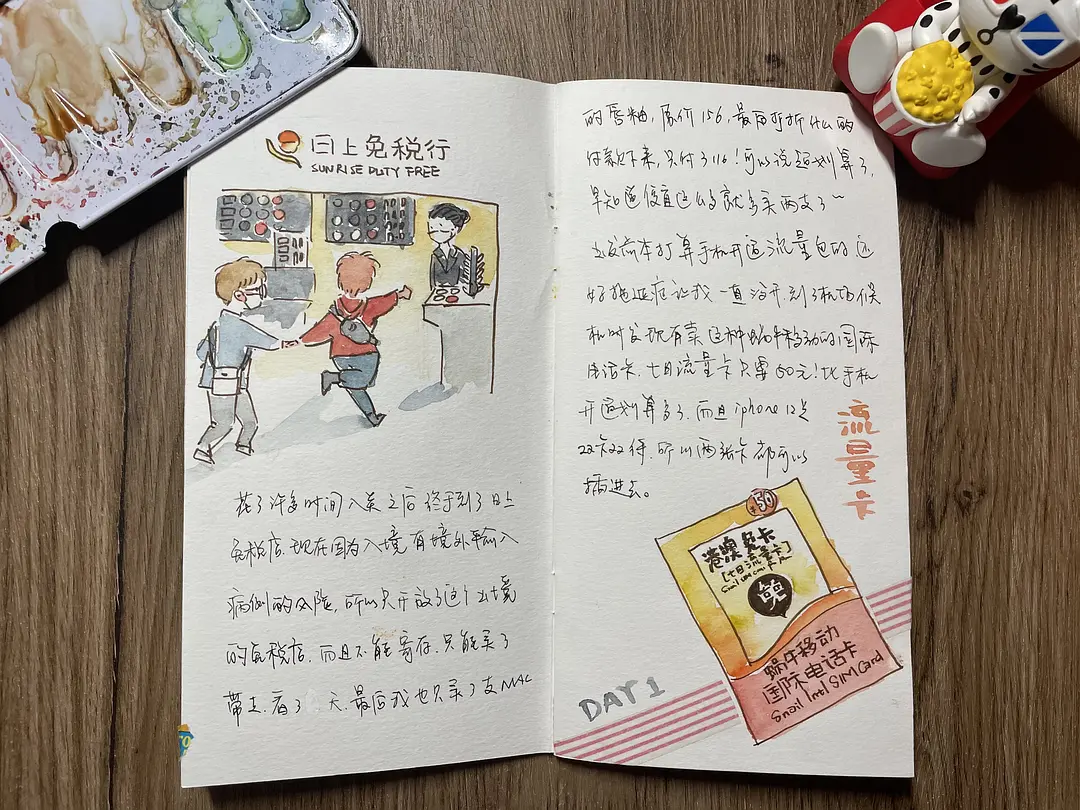 日上免税行
SUNRISE DUTY FREE
花了许多时间入关之后终于到了日上
免税店.现在因为入境有境外输入
病例的风险,所以只开放了这个出境
的免税店.而且不能寄存.只能买了
带走.看了 天.最后我也只买了支MAC
的唇釉,原价156,最后打折什么的
付款下来,只付了116!可以说超划算了,
早知道便宜这么多就多买两支了~
出发前本打算手机开通流量包的 还
好拖延症让我一直没开.到了机场候
机时发现有卖这种蜗牛移动的国际
电话卡.七日流量卡只要50元!比手机
开通划算多了.而且iphone 12是
双卡双待.所以两张卡都可以
插进去。
流量卡
¥50
港澳免卡
[七日流量卡]
免
蜗牛移动
国际电话卡
Snail Intl SIM Card
DAY 1